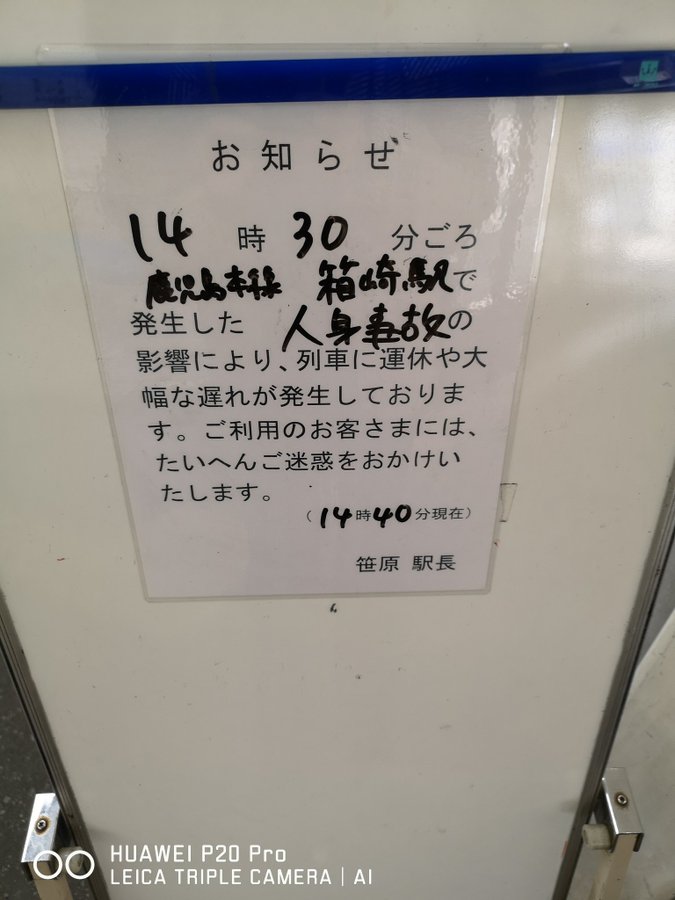 お知らせ
14時30分ごろ
鹿児島本線 箱崎駅で
発生した 人身事故の
影響により、列車に運休や大
幅な遅れが発生しておりま
す。ご利用のお客さまには、
たいへんご迷惑をおかけい
たします。
（14時40分現在）
笹原 駅長
HUAWEI P20 Pro
LEICA TRIPLE CAMERA | AI